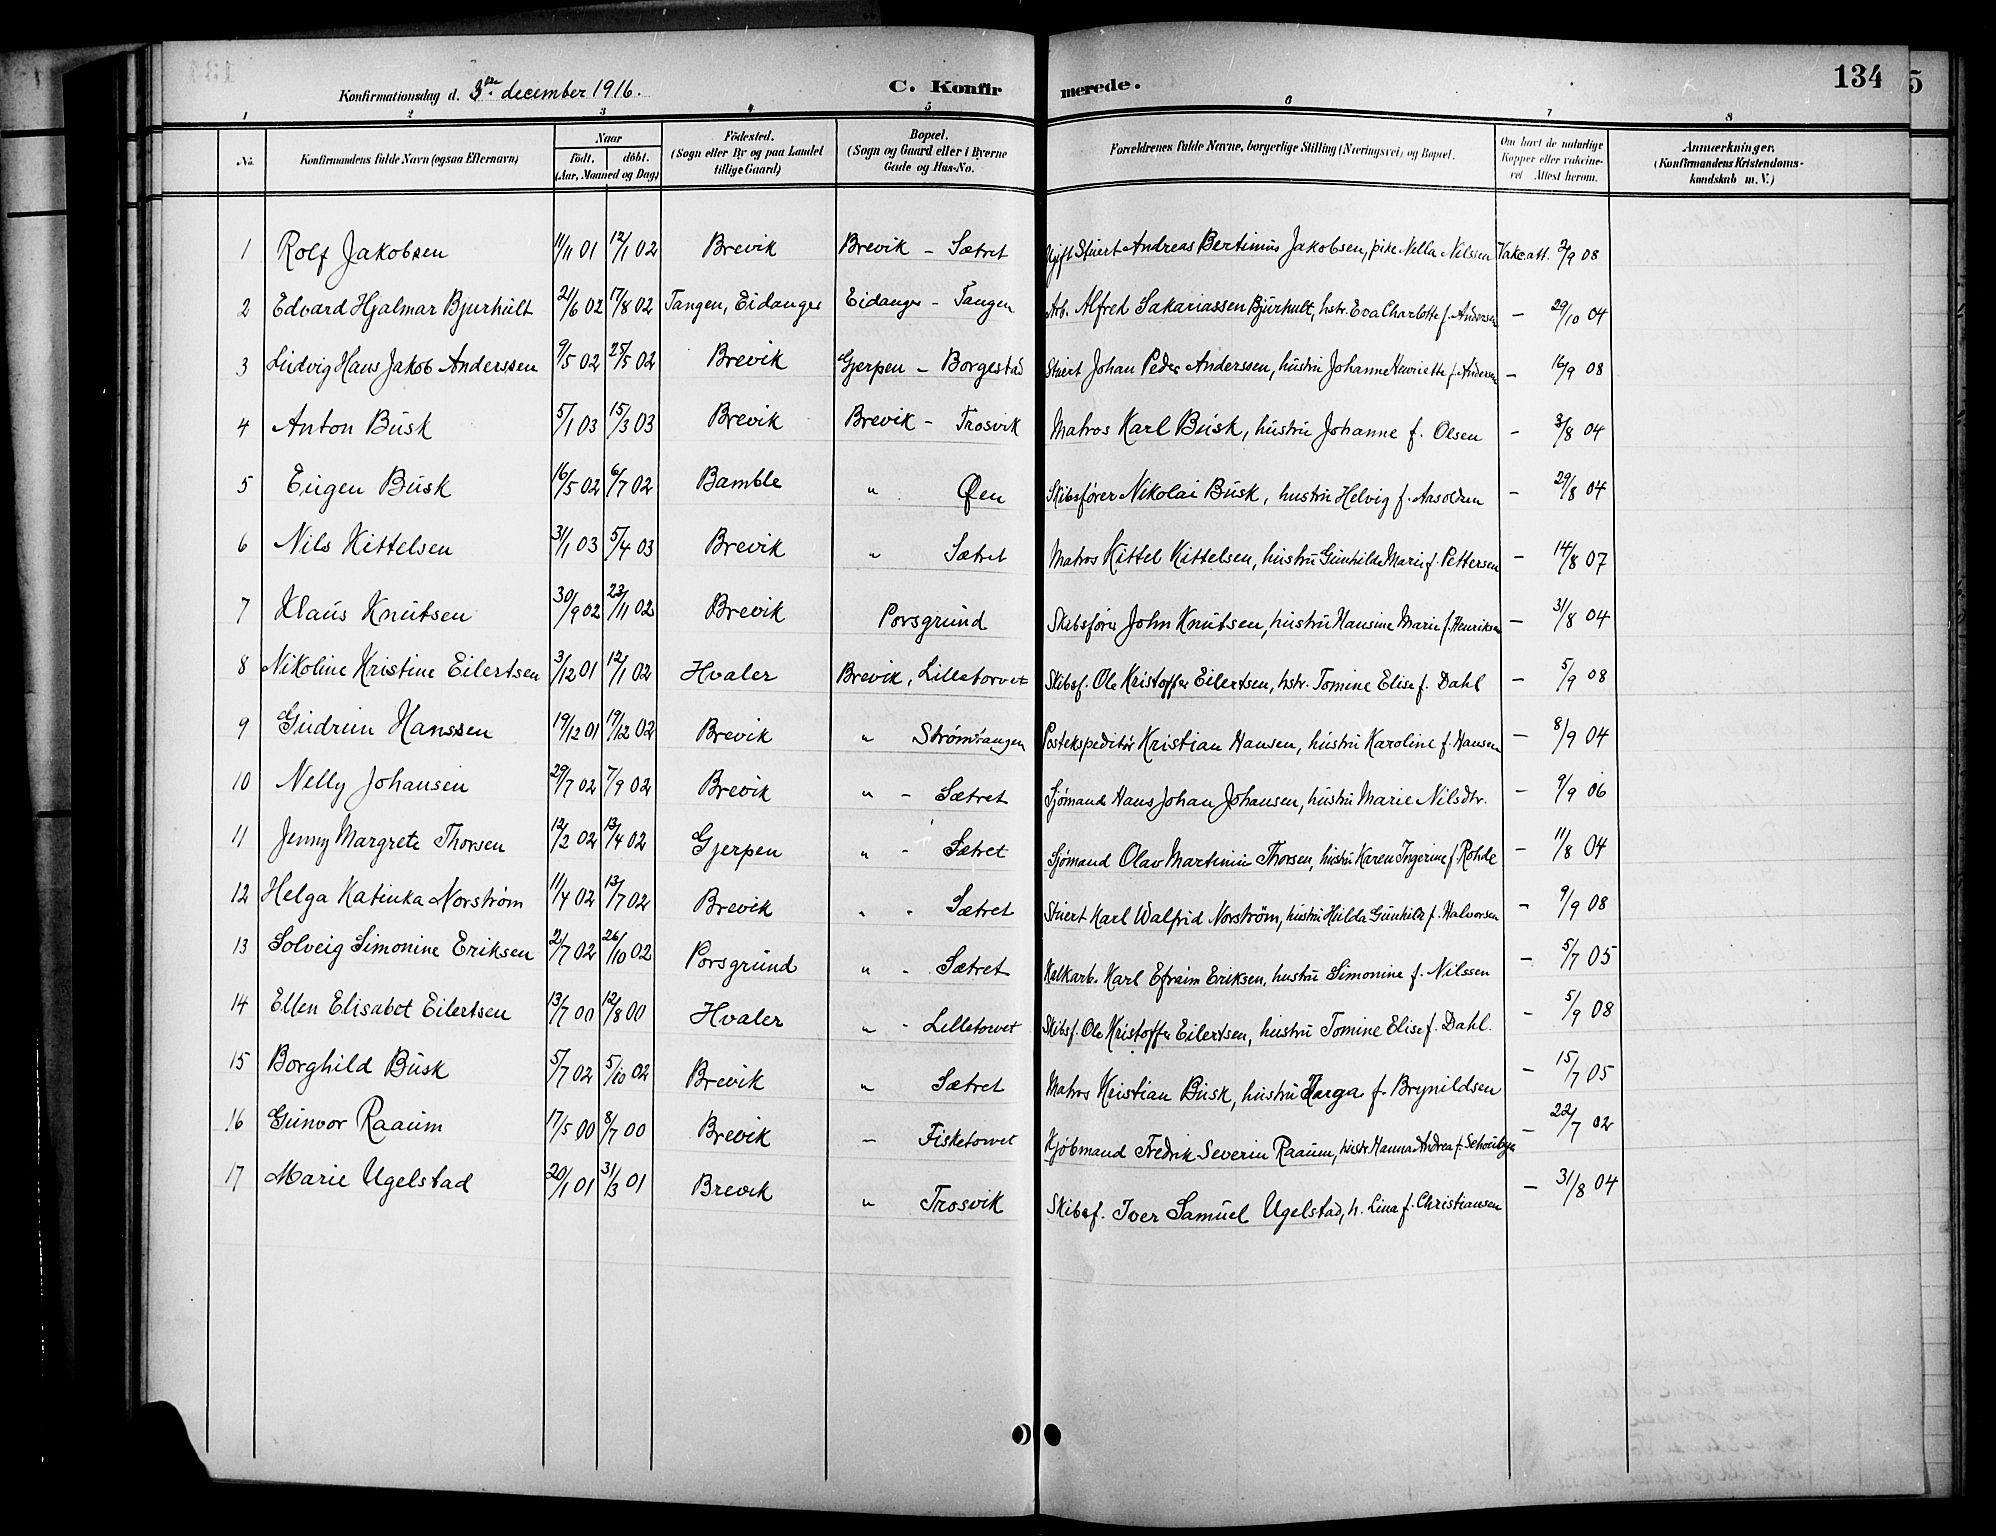 134
5
Konfirmationsdag d. 3die december 1916.
C. Konfirmerede.
1 2 3 4 5 6 7 8
No. Konfirmandens fulde Navn (ogsaa Efternavn) Naar født. døbt. (Aar, Maaned og Dag) Fødested. (Sogn eller By og paa Landet tillige Gaard) Bopæl. (Sogn og Gaard eller i Byerne Gade og Hus-No. Forældrenes fulde Navne, borgerlige Stilling (Næringsvei) og Bopæl. Om havt de naturlige Kopper eller vakcineret Attest herom. Anmærkninger. (Konfirmandens Kristendomskundskab m. V.)
1 Rolf Jakobsen 11/11 01 12/1 02 Brevik Brevik - Sætret Ugift Stuert Andreas Bertinius Jakobsen, pike Nella Nilssen Vakc att. 2/9 08
2 Edvard Hjalmar Bjurhult 21/6 02 17/8 02 Tangen, Eidanger Eidanger - Tangen Arb. Alfred Sakariassen Bjurhult, hstr. Eva Charlotte f. Andersen - 29/10 04
3 Ludvig Hans Jakob Anderssen 9/5 02 25/5 02 Brevik Gjerpen - Borgestad Stuert Johan Peder Anderssen, hustru Johanne Henriette f. Andersen - 16/9 08
4 Anton Busk 5/1 03 15/3 03 Brevik Brevik - Trosvik Matros Karl Busk, hustru Johanne f. Olsen - 3/8 04
5 Eugen Busk 16/5 02 6/7 02 Bamble " Øen Skibsfører Nikolai Busk, hustru Helvig f. Aasoldsen - 29/8 04
6 Nils Kittelsen 31/1 03 5/4 03 Brevik " Sætret Matros Kittel Kittelsen, hustru Gunhilde Marie f. Pettersen - 14/8 07
7 Klaus Knutsen 30/9 02 23/11 02 Brevik Porsgrund Skibsfører John Knutsen, hustru Hansine Marie f. Henriksen - 31/8 04
8 Nikoline Kristine Eilertsen 3/12 01 12/1 02 Hvaler Brevik, Lilletorvet Skibsf. Ole Kristoffer Eilertsen, hstr. Tomine Elise f. Dahl - 5/9 08
9 Gudrun Hanssen 19/12 01 19/12 02 Brevik " Strømtangen Postekspeditør Kristian Hansen, hustru Karoline f. Hansen - 8/9 04
10 Nelly Johansen 29/7 02 7/9 02 Brevik " - Sætret Sjømand Hans Johan Johansen, hustru Marie Nilsdtr. - 9/9 06
11 Jenny Margrete Thorsen 12/2 02 13/4 02 Gjerpen " - Sætret Sjømand Olav Martinius Thorsen, hustru Karen Ingerine f. Rohde - 11/8 04
12 Helga Katinka Norstrøm 11/4 02 13/7 02 Brevik " - Sætret Stuert Karl Walfrid Norström, hustru Hulda Gunhild f. Halvorsen - 9/9 08
13 Solveig Simonine Eriksen 2/7 02 26/10 02 Porsgrund " - Sætret Kalkarb. Karl Efraim Eriksen, hustru Simonine f. Nilssen - 5/7 05
14 Ellen Elisabet Eilertsen 13/7 00 12/8 00 Hvaler " - Lilletorvet Skibsf. Ole Kristoffer Eilertsen, hustru Tomine Elise f. Dahl. - 5/9 08
15 Borghild Busk 5/7 02 5/10 02 Brevik " Sætret Matros Kristian Busk, hustru Marga f. Brynildsen - 15/7 05
16 Gunvor Raaum 17/5 00 8/7 00 Brevik - Fisketorvet Kjøbmand Fredrik Severin Raaum, hustr. Hanna Andrea f. - 22/7 02
17 Marie Ugelstad 20/1 01 31/3 01 Brevik " Trosvik Skibsf. Iver Samuel Ugelstad, h. Lina f. Christiansen - 31/8 04